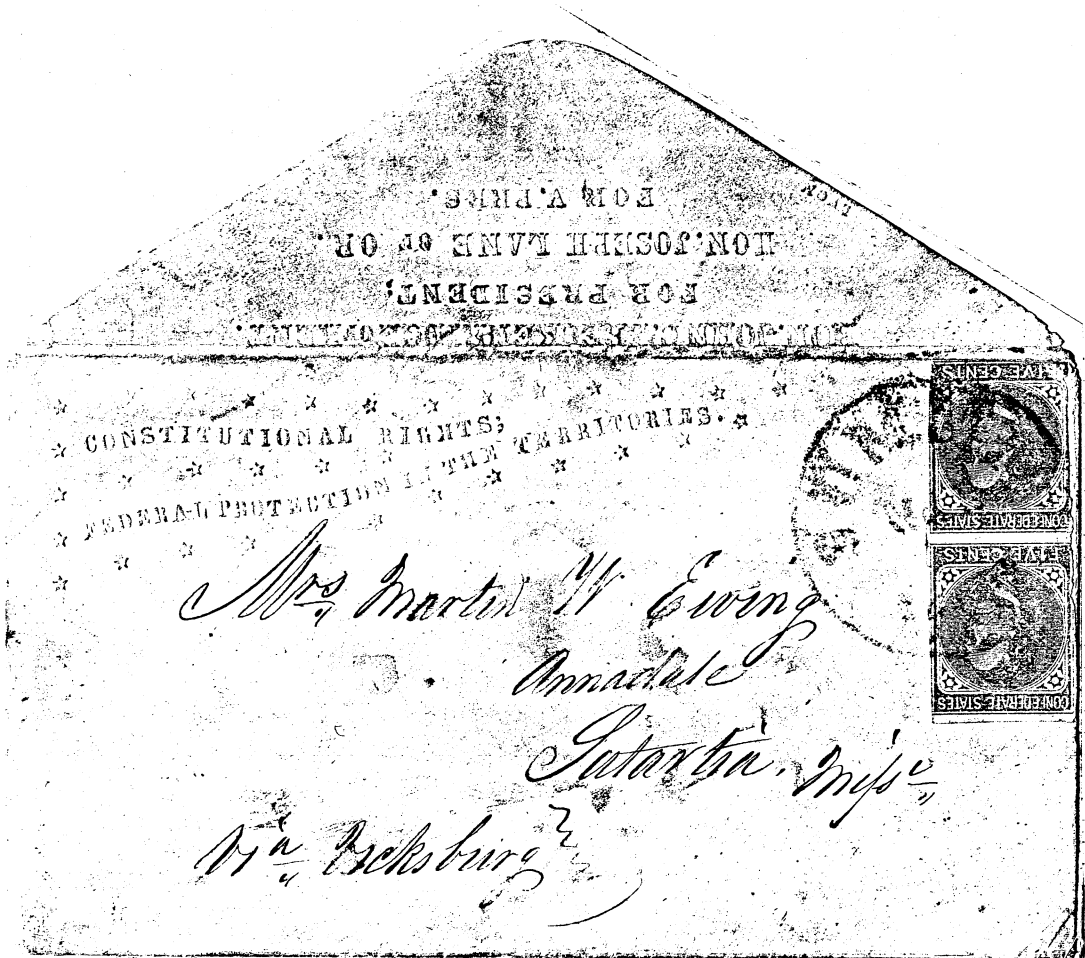 HON. JOHN C. BRECKENRIDGE OF KENT.
FOR PRESIDENT;
HON. JOSEPH LANE OF OR.
FOR V. PRES.
CONSTITUTIONAL RIGHTS;
FEDERAL PROTECTION IN THE TERRITORIES.
FIVE CENTS
CONFEDERATE STATES
FIVE CENTS
CONFEDERATE STATES
Mrs Martin W Ewing
Annadale
Satartia. Missi
Via Vicksburg